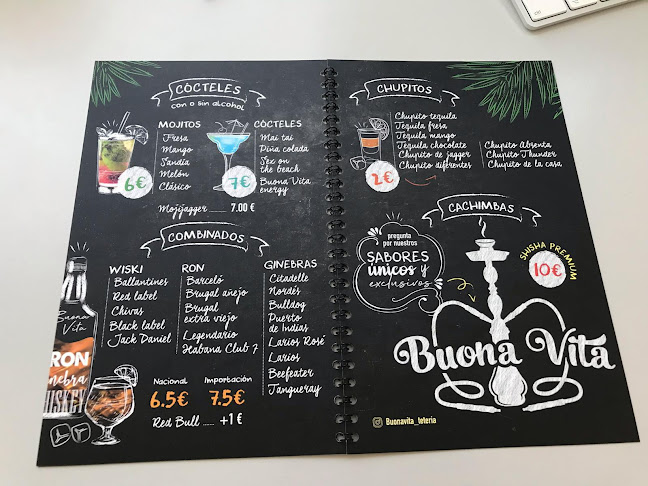 CÓCTELES
con o sin alcohol
MOJITOS
Fresa
Mango
Sandía
Melón
Clásico
6€
CÓCTELES
Mai tai
Piña colada
Sex on
the beach
Buona Vita
energy
7€
Mojijagger ........ 7.00 €
COMBINADOS
WISKI
Ballantines
Red label
Chivas
Black label
Jack Daniel
RON
Barceló
Brugal añejo
Brugal
extra viejo
Legendario
Habana Club 7
GINEBRAS
Citadelle
Nordés
Bulldog
Puerto
de Indias
Larios Rosé
Larios
Beefeater
Tangueray
Buona
Vita
RON
Ginebra
WHISKEY
Nacional
6.5€
Importación
7.5€
Red Bull ...... +1 €
CHUPITOS
Chupito tequila
Tequila fresa
Tequila mango
Tequila chocolate
Chupito de jagger
Chupito diferentes
Chupito Absenta
Chupito Thunder
Chupito de la casa
2€
CACHIMBAS
pregunta
por nuestros
SABORES
únicos y
exclusivos
SHISHA PREMIUM
10€
Buona Vita
Buonavita_teteria